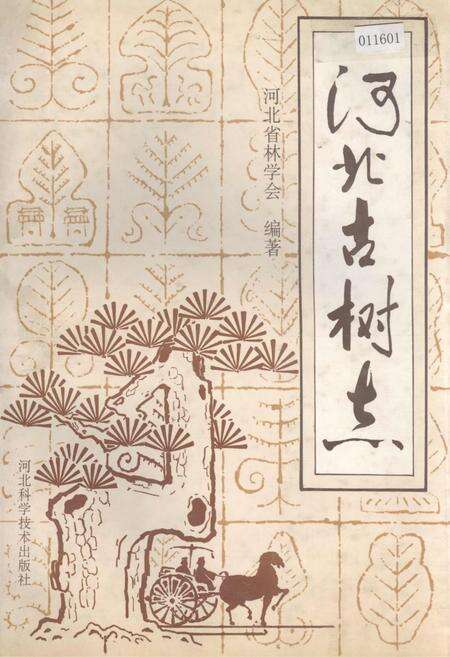 011601
河北古树志
河北省林学会 编著
河北科学技术出版社